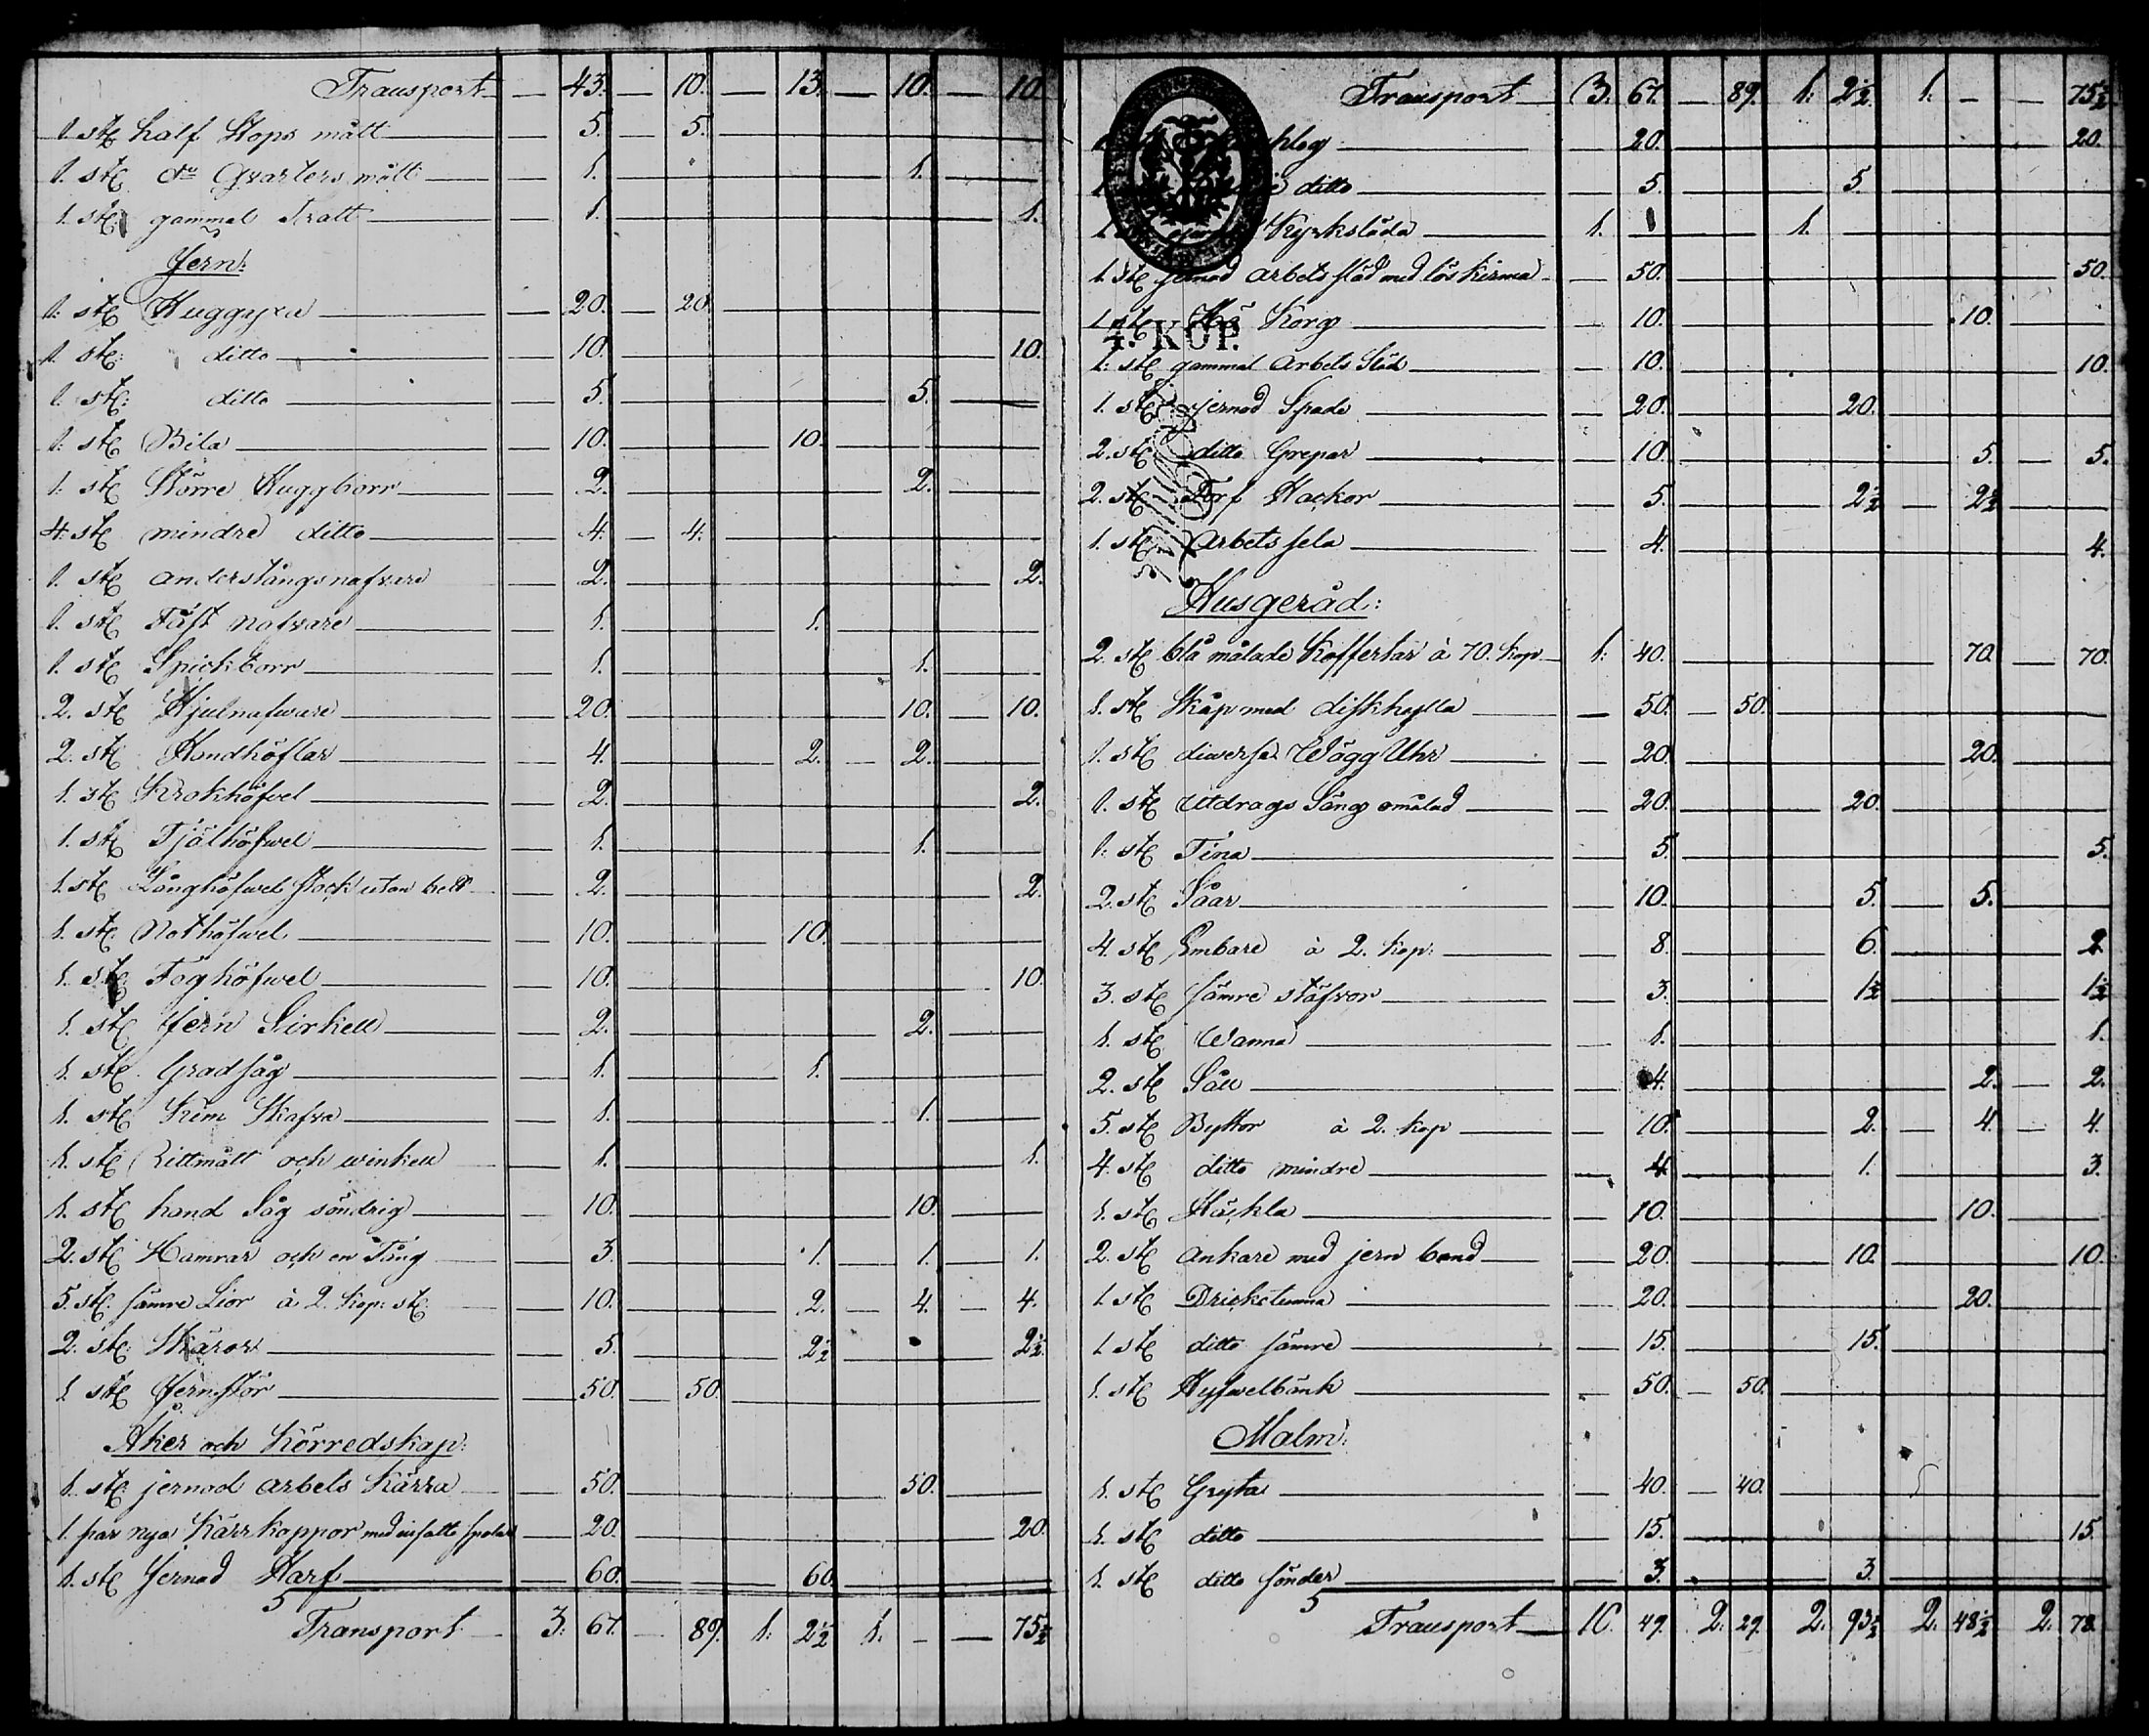 Transport — 43. — 10. — 13. — 10. — 10.
1. st half Stops mått — 5. — 5.
1. st do Qvarters mått — 1. — 1.
1. st gammal Tratt — 1. — 1.
Jern:
1. st Huggyxa — 20. — 20.
1. st ditto — 10. — 10.
1. st ditto — 5. — 5.
1. st Bila — 10. — 10.
1. st Större Huggborr — 2. — 2.
4. st mindre ditto — 4. — 4.
1. st anderstångsnafvare — 2. — 2.
1. st Fäst nafvare — 1. — 1.
1. st Spickborr — 1. — 1.
2. st Hjulnafware — 20. — 10. — 10.
2. st Handhöflar — 4. — 2. — 2.
1. st Krokhöfvel — 2. — 2.
1. st Tjälhöfwel — 1. — 1.
1. st Långhöfwel stock utan bett — 2. — 2.
1. st Nothöfwel — 10. — 10.
1. st Foghöfwel — 10. — 10.
1. st Jern Sirkell — 2. — 2.
1. st Gradsåg — 1. — 1.
1. st Kim Skafva — 1. — 1.
1. st Rittmått och winkell — 1. — 1.
1. st hand Såg söndrig — 10. — 10.
2. st Hamrar och en Tång — 3. — 1. — 1. — 1.
5. st. sämre Lior à 2. kop: st — 10. — 2. — 4. — 4.
2. st Skäror — 5. — 2½ — 2½
1. st Jernstör — 50. — 50.
Åker och Körredskap:
1. st jernod arbets Kärra — 50. — 50.
1. par nya Kärrkappor med insatte spolar — 20. — 20.
1. st Jernad Harf — 60. — 60.
Transport — 3. 67. — 89. 1: 2½ 1. — — 75½
Transport — 3. 67. — 89. 1: 2½ 1: — — 75½
20. — 20.
ditto — 5. — 5.
1. Kyrksläda — 1. — 1.
1. st jernad arbets släd med lös Kärma — 50. — 50.
1. st Hö Korg — 10. — 10.
4. KOP.
1: st gammal arbets Släd — 10. — 10.
1. st jernad Spade — 20. — 20.
2. st ditto Grepar — 10. — 5. — 5.
2. st Torf Hackor — 5. — 2½ — 2½
1. st arbets sela — 4. — 4.
Husgeråd:
2. st blå målade Koffertar à 70. kop — 1: 40. — 70. — 70.
1. st Skåp med diskhylla — 50. — 50.
1. st Wägg Uhr — 20. — 20.
1. st utdrags Säng omålad — 20. — 20.
1: st Tina — 5. — 5.
2. st Såar — 10. — 5. — 5.
4. st Embare à 2. kop: — 8. — 6. — 2.
3. st sämre stäfvor — 3. — 1½ — 1½
1. st Wanna — 1. — 1.
2. st Såll — 4. — 2. — 2.
5. st Byttor à 2. kop — 10. — 2. — 4. — 4.
4. st ditto mindre — 4 — 1. — 3.
1. st Häckla — 10. — 10.
2. st ankare med jern band — 20. — 10. — 10.
1. st Dricktunna — 20. — 20.
1. st ditto sämre — 15. — 15.
1. st Hyfwelbänk — 50. — 50.
Malm:
1. st Gryta — 40. — 40.
1. st ditto — 15. — 15.
1. st ditto sönder — 3. — 3.
Transport — 10. 49. 2: 29. 2. 93½ 2. 48½ 2. 78